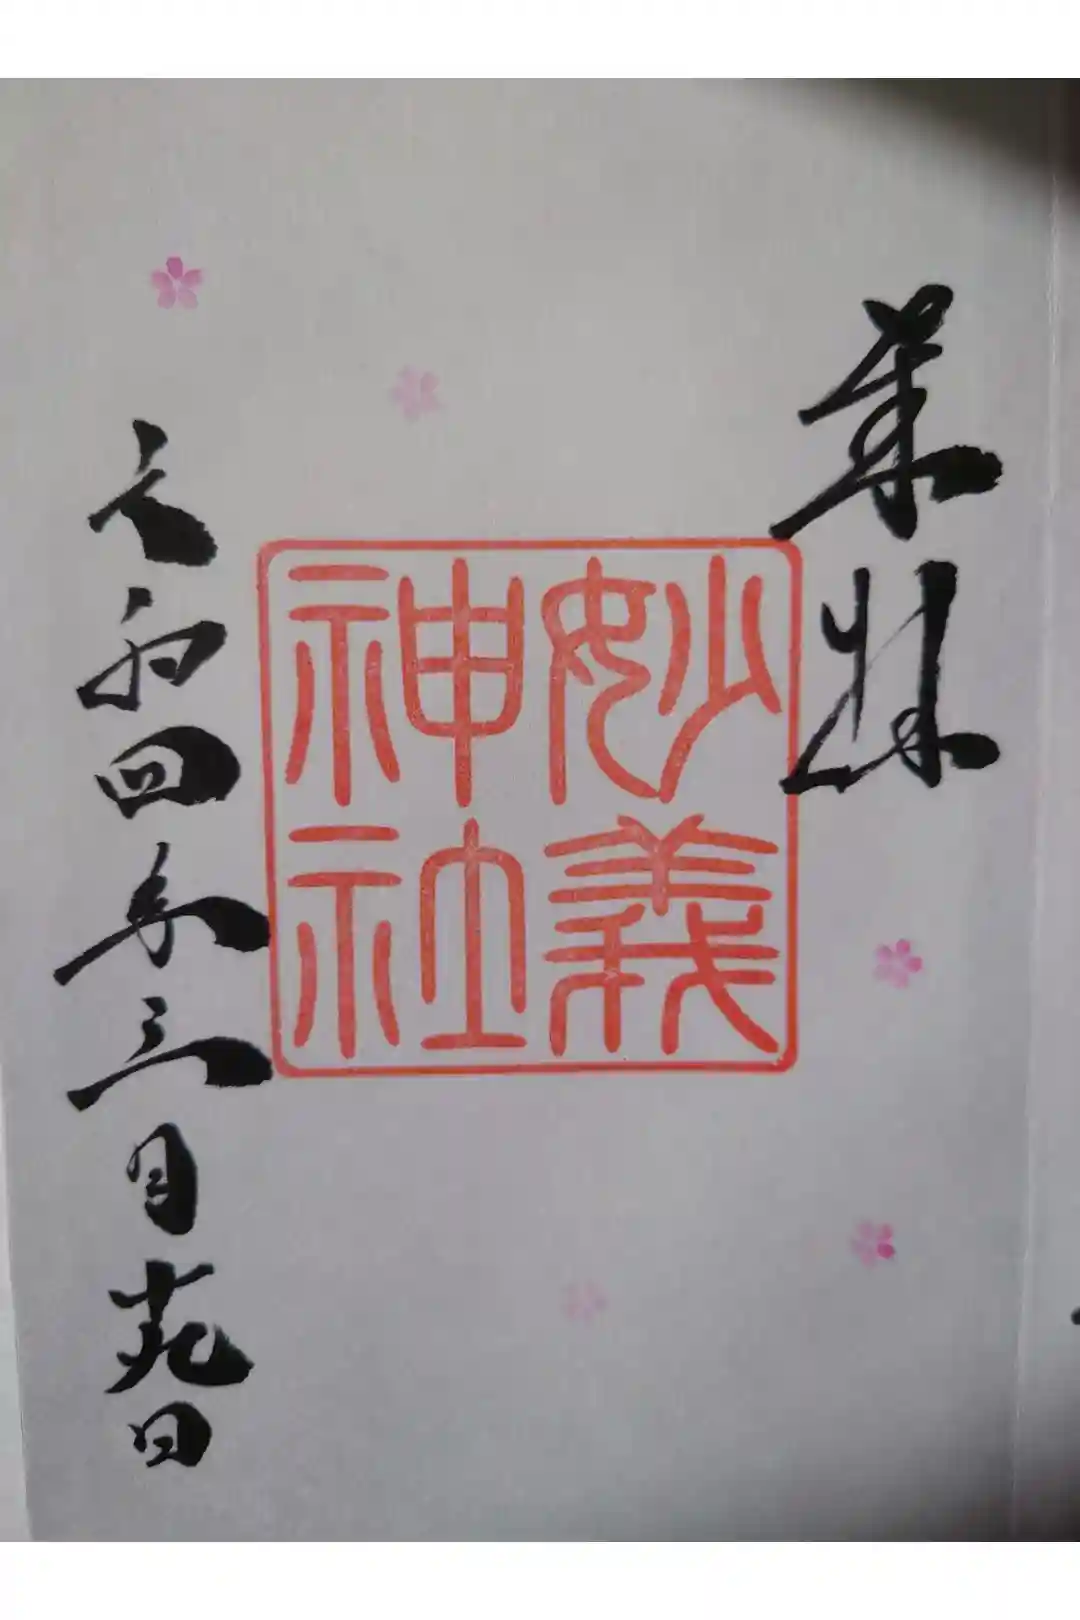 奉拝
妙義
神社
令和四年三月十九日